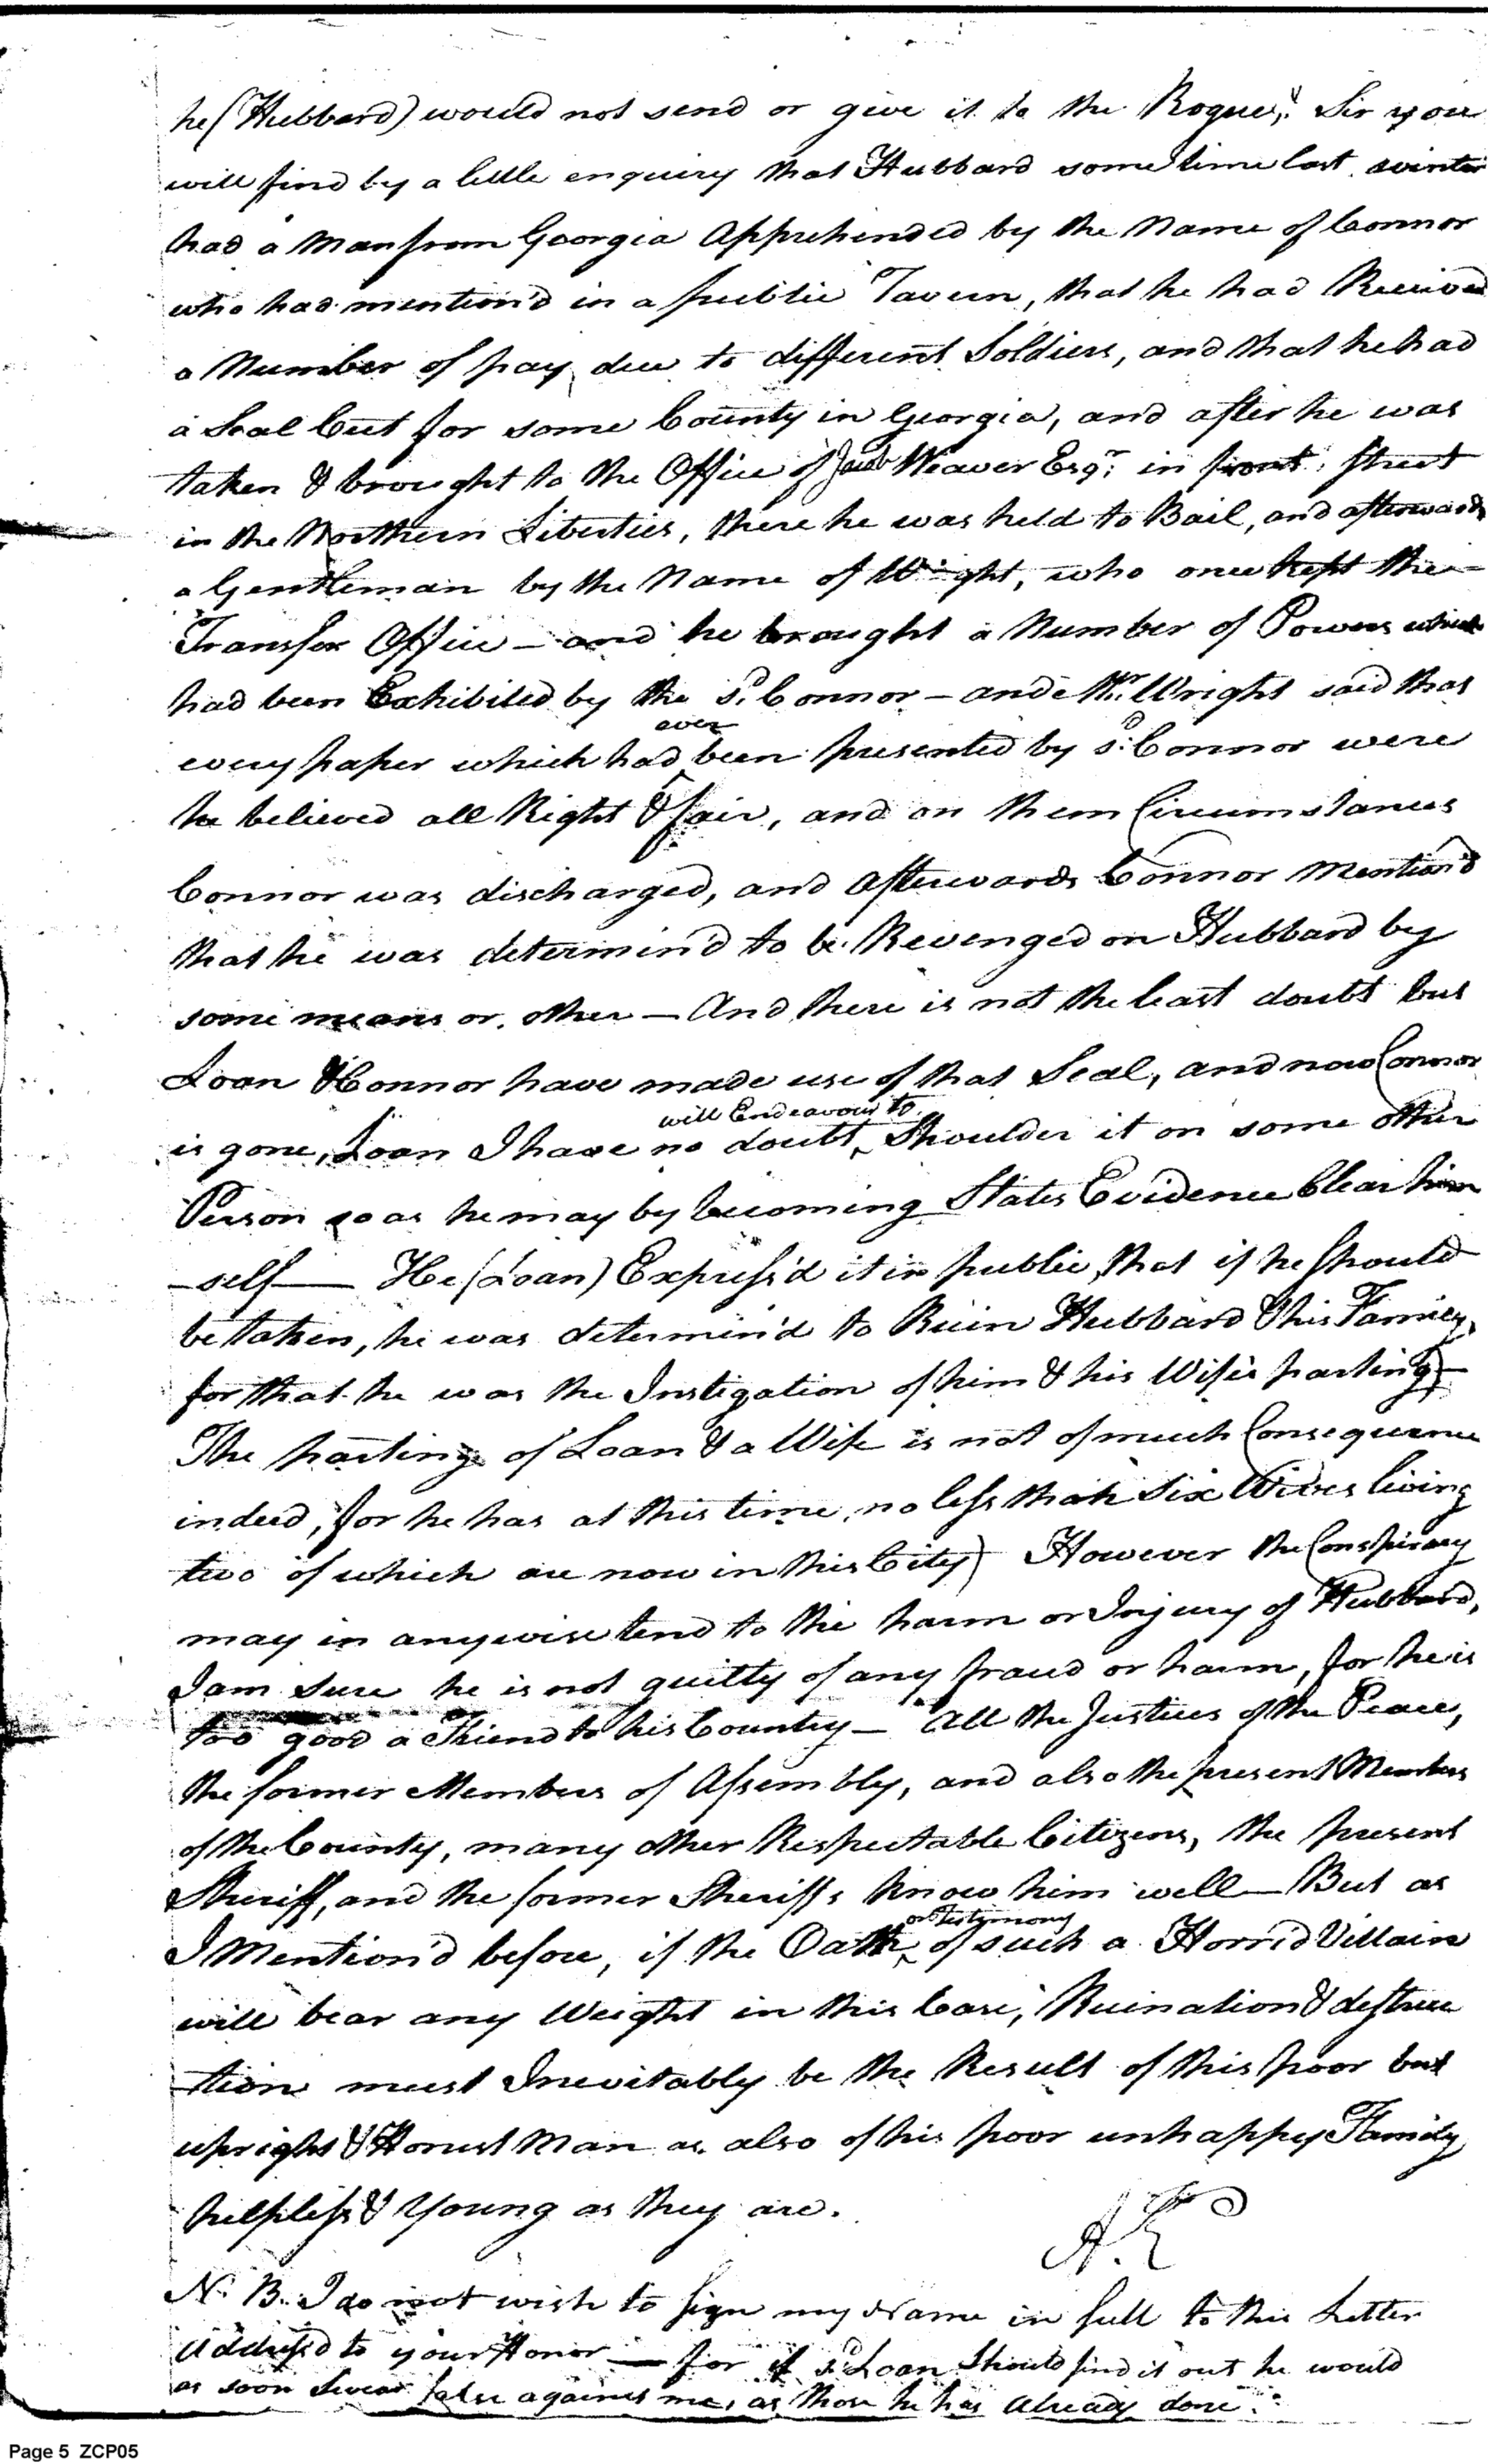 he (Hubbard) would not send or give it to the Rogue," Sir you
will find by a little enquiry that Hubbard sometime last winter
had a Man from Georgia Apprehended by the Name of Connor
who had mention'd in a public Tavern, that he had Received
a Number of pay due to different Soldiers, and that he had
a Seal Cut for some County in Georgia, and after he was
taken & brought to the Office of Jacob Weaver Esqr. in front Street
in the Northern Liberties, there he was held to Bail, and afterwards
a Gentleman by the Name of Wright, who once kept the
Transfer Office - and he brought a Number of Powers which
had been Exhibited by the sd. Connor - and Mr. Wright said that
ever
every paper which had been presented by sd. Connor were
he believed all Right & fair, and on them Circumstances
Connor was discharged, and afterwards Connor Mention'd
that he was determin'd to be Revenged on Hubbard by
some means or other — And there is not the least doubt but
Loan & Connor have made use of that Seal, and now Connor
will Endeavour to
is gone, Loan I have no doubt Shoulder it on some other
Person so as he may by becoming States Evidence Clear him
-self — He (Loan) Express'd it in public that if he should
be taken, he was determin'd to Ruin Hubbard & his Family,
for that he was the Instigation of him & his Wife's parting —
The parting of Loan & a Wife is not of much Consequence
indeed, for he has at this time no less than Six Wives living
two of which are now in this City) However the Conspiracy
may in anywise tend to the harm or Injury of Hubbard,
I am sure he is not guilty of any fraud or harm, for he is
too good a Friend to his Country — All the Justices of the Peace,
the former Members of Assembly, and also the present Members
of the County, many other Respectable Citizens, the present
Sheriff, and the former Sheriffs know him well — But as
or Testimony
I Mention'd before, if the Oath of such a Horrid Villain
will bear any Weight in this Case, Ruination & destruc
-tion must Inevitably be the Result of this poor but
upright & Honest Man as also of his poor unhappy Family
helpless & Young as they are.
A. E
N. B. I do not wish to sign my Name in full to this Letter
Address'd to your Honor — for if sd. Loan should find it out he would
as soon Swear false against me, as those he has already done.
Page 5 ZCP05